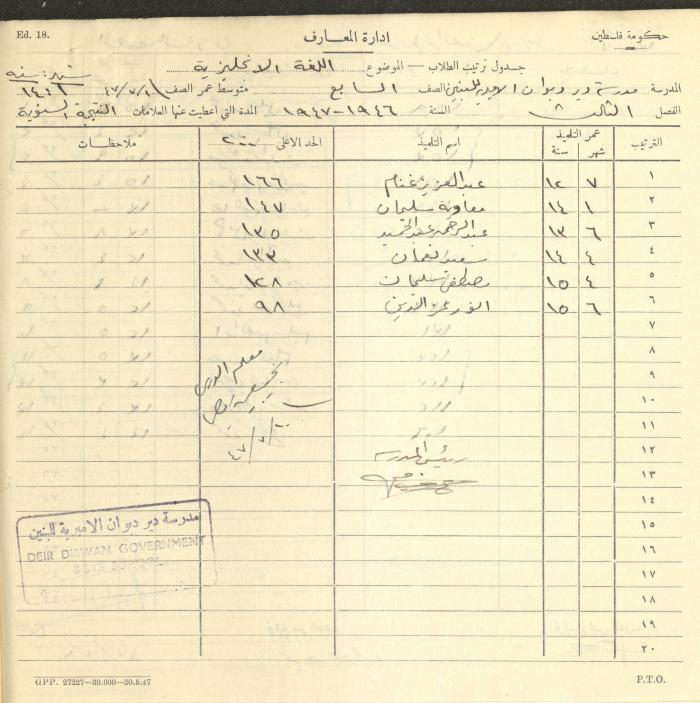 Ed. 18.
ادارة المعارف
حكومة فلسطين
جدول ترتيب الطلاب — الموضوع اللغة الانجليزية
المدرسة مدرسة دير دبوان الاميرية للبنين الصف السابع متوسط عمر الصف شهر: سنه
الفصل الثالث السنة ١٩٤٦-١٩٤٧ المدة التي اعطيت عنها العلامات النتيجة السنوية
الترتيب عمر التلميذ شهر سنة اسم التلميذ الحد الاعلى ٢٠٠ ملاحظات
١ ٧ ١٢ عبد العزيز غنام ١٦٦
٢ ١ ١٤ معاوية سليمان ١٤٧
٣ ٦ ١٣ عبد الرحمن عبد الحميد ١٣٥
٤ ٤ ١٤ سعيد نعمان ١٣٣
٥ ٤ ١٥ مصطفى سليمان ١٢٨
٦ ٦ ١٥ انور عز الدين ٩٨
٧
٨
٩
١٠
١١
١٢
١٣
١٤
١٥
١٦
١٧
١٨
١٩
٢٠
معلم الدرس
رئيس المدرسة
مدرسة دير دبوان الاميرية للبنين
DEIR DIBWAN GOVERNMENT
BOYS SCHOOL
GPP. 27227—30.000—20.5.47
P.T.O.